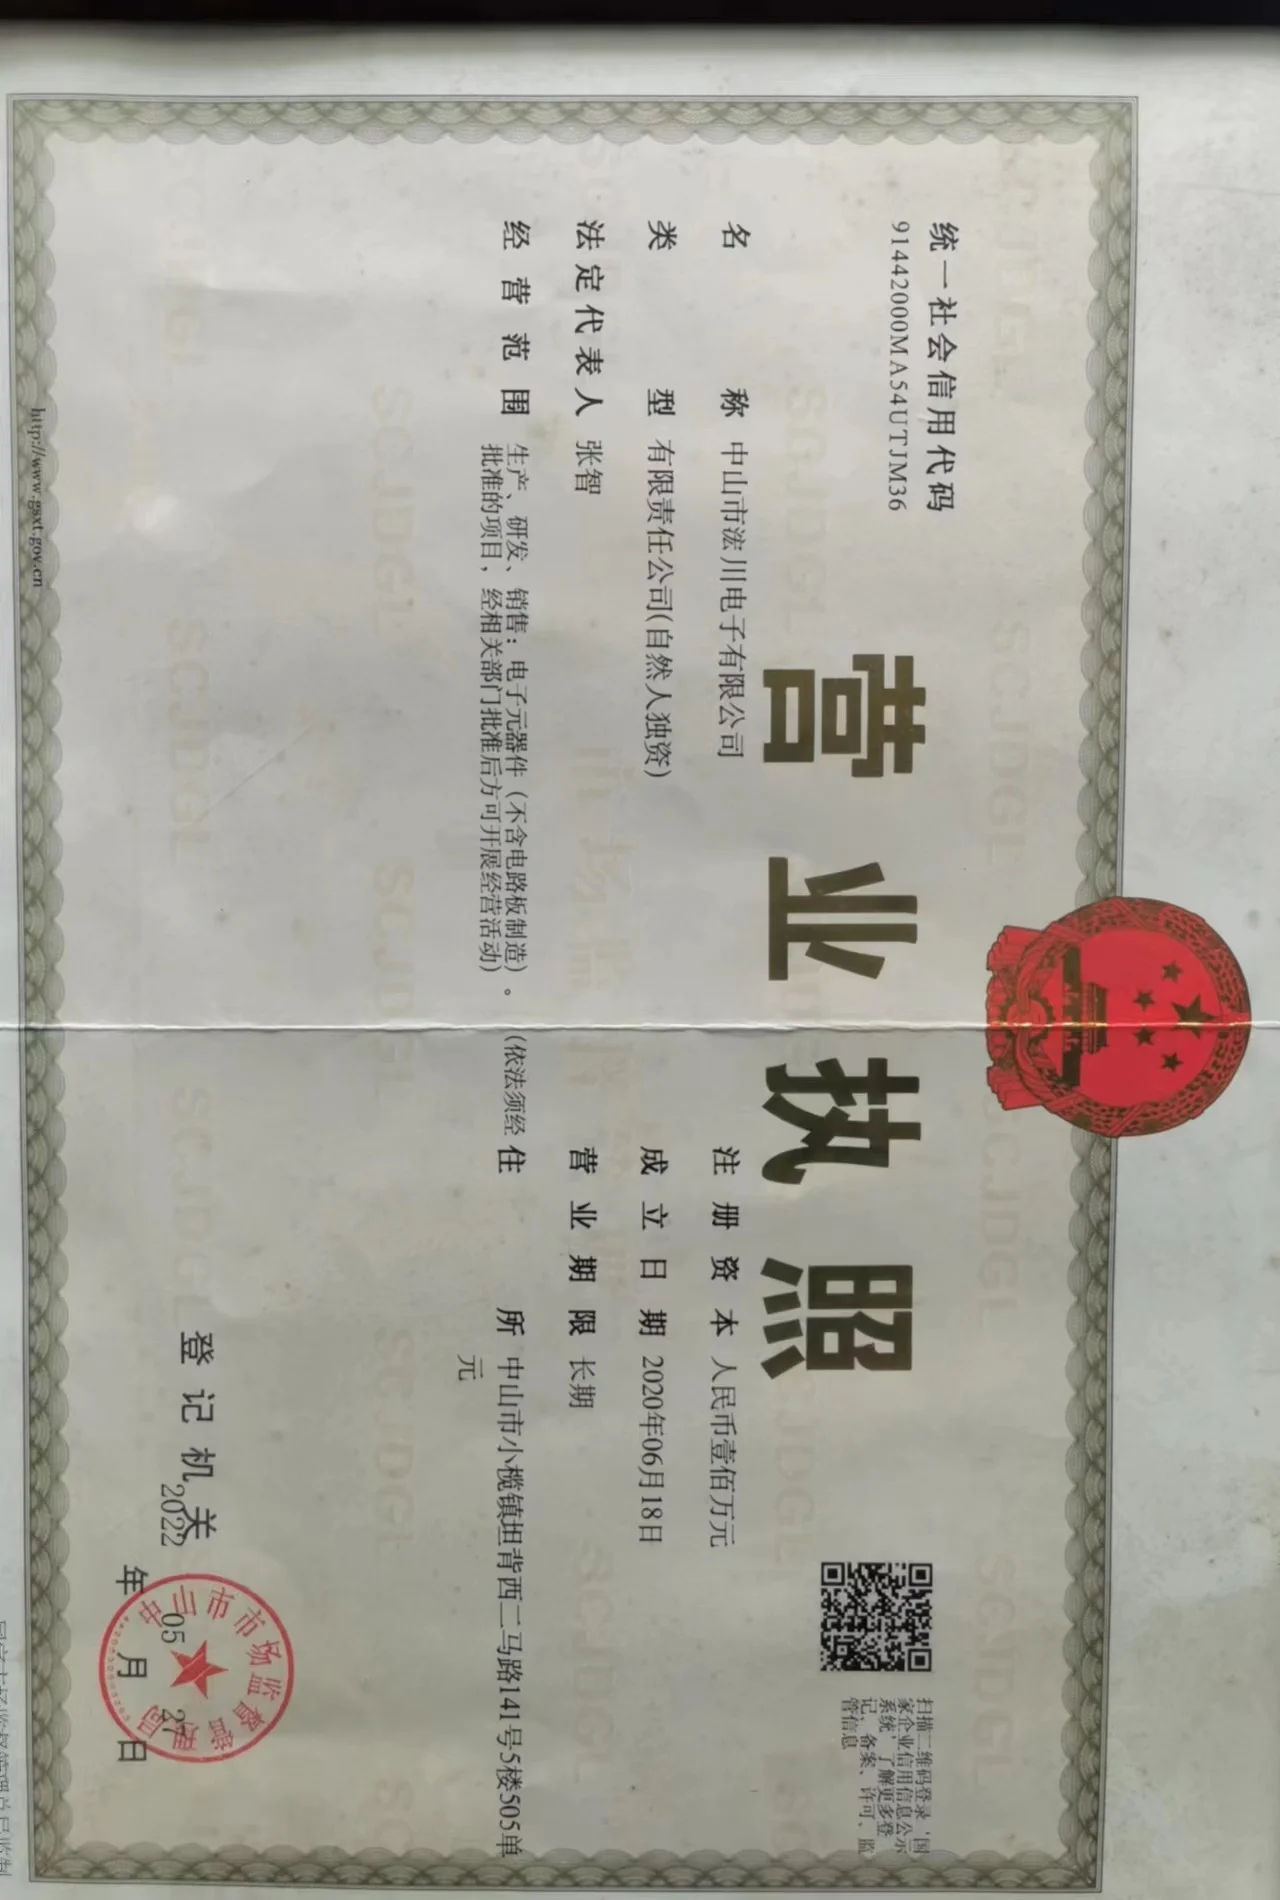 统一社会信用代码
91442000MA54UTJM36
营业执照
扫描二维码登录'国
家企业信用信息公示
系统'了解更多登
记、备案、许可、监
管信息
名称 中山市浤川电子有限公司
类型 有限责任公司(自然人独资)
法定代表人 张智
经营范围 生产、研发、销售：电子元器件（不含电路板制造）。（依法须经
批准的项目，经相关部门批准后方可开展经营活动）
注册资本 人民币壹佰万元
成立日期 2020年06月18日
营业期限 长期
住所 中山市小榄镇坦背西二马路141号5楼505单
元
登记机关
2022年05月27日
中山市市场监督管理局
http://www.gsxt.gov.cn
国家市场监督管理总局监制
SCJDGL
市场监督管理